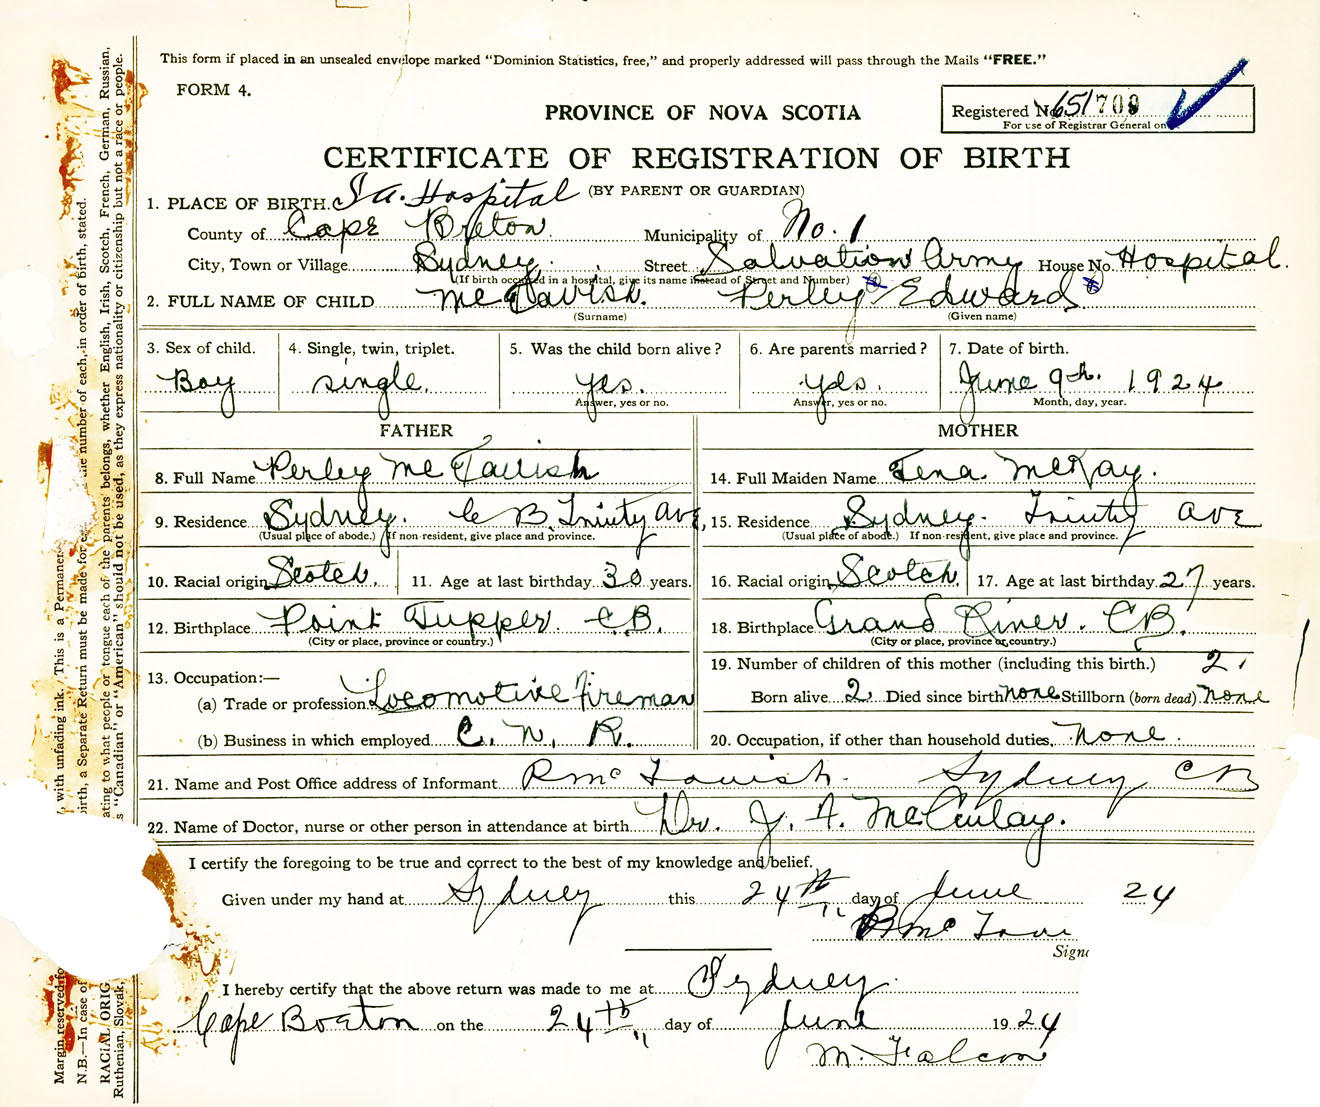 This form if placed in an unsealed envelope marked “Dominion Statistics, free,” and properly addressed will pass through the Mails “FREE.”
FORM 4.
PROVINCE OF NOVA SCOTIA
Registered No. 651709
For use of Registrar General on
CERTIFICATE OF REGISTRATION OF BIRTH
(BY PARENT OR GUARDIAN)
1. PLACE OF BIRTH. S A. Hospital
County of Cape Breton Municipality of No. 1
City, Town or Village Sydney. Street Salvation Army House No. Hospital.
(If birth occurred in a hospital, give its name instead of Street and Number)
2. FULL NAME OF CHILD McTavish. Perley Edward
(Surname) (Given name)
3. Sex of child. 4. Single, twin, triplet. 5. Was the child born alive? 6. Are parents married? 7. Date of birth.
Boy single. yes. yes. June 9th. 1924
Answer, yes or no. Answer, yes or no. Month, day, year.
FATHER MOTHER
8. Full Name Perley McTavish 14. Full Maiden Name Tena McKay.
9. Residence Sydney. C B. Trinty Ave, 15. Residence Sydney. Trinty Ave
(Usual place of abode.) If non-resident, give place and province. (Usual place of abode.) If non-resident, give place and province.
10. Racial origin Scotch. 11. Age at last birthday 30 years. 16. Racial origin Scotch. 17. Age at last birthday 27 years.
12. Birthplace Point Tupper. C.B. 18. Birthplace Grand River. CB.
(City or place, province or country.) (City or place, province or country.)
13. Occupation:— 19. Number of children of this mother (including this birth.) 2.
(a) Trade or profession Locomotive Fireman Born alive 2. Died since birth none Stillborn (born dead) none
(b) Business in which employed C. N. R. 20. Occupation, if other than household duties, None.
21. Name and Post Office address of Informant P Mc Tavish. Sydney CB
22. Name of Doctor, nurse or other person in attendance at birth Dr. J. A. McCaulay.
I certify the foregoing to be true and correct to the best of my knowledge and belief.
Given under my hand at Sydney this 24th day of June 24
P Mc Tavi
Signa
I hereby certify that the above return was made to me at Sydney.
Cape Breton on the 24th day of June 1924
M. Falcon
Margin reserved fo
, with unfading ink. This is a Permanen
N.B.—In case of
birth, a Separate Return must be made for e
he number of each, in order of birth, stated.
RACIAL ORIG
ating to what people or tongue each of the parents belongs, whether English, Irish, Scotch, French, German, Russian,
Ruthenian, Slovak,
s “Canadian” or “American” should not be used, as they express nationality or citizenship but not a race or people.